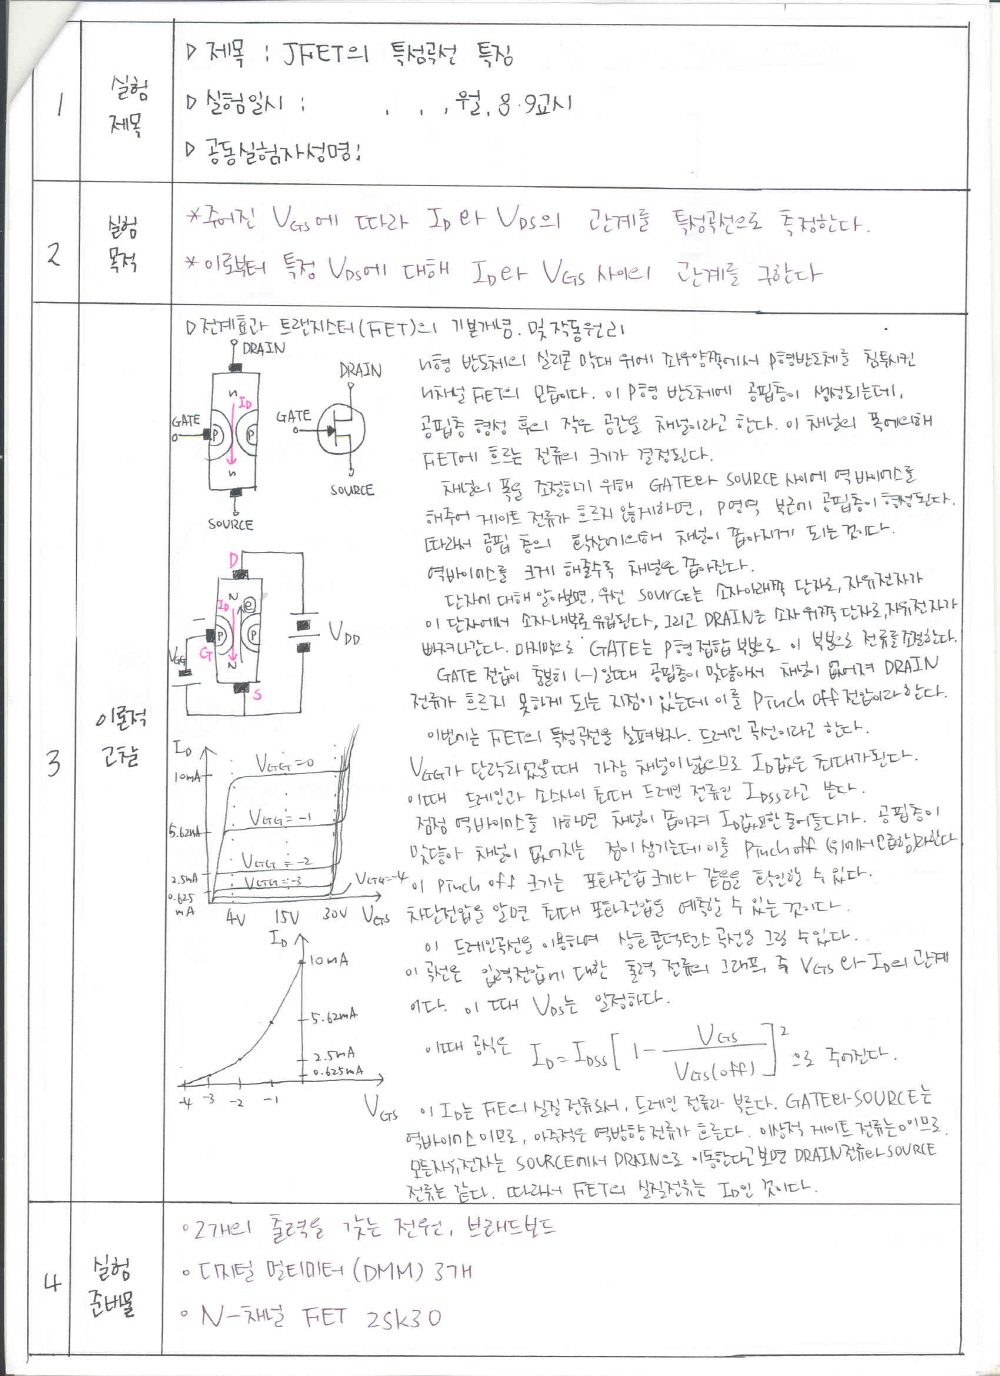 1
실험
제목
▷ 제목 : JFET의 특성곡선 특징
▷ 실험일시 : . . , 월, 8·9교시
▷ 공동실험자성명:
2
실험
목적
*주어진 VGS에 따라 ID와 VDS의 관계를 특성곡선으로 측정한다.
*이로부터 특정 VDS에 대해 ID와 VGS 사이의 관계를 구한다
3
이론적
고찰
▷전계효과 트랜지스터(FET)의 기본개념. 및 작동원리
DRAIN
n
ID
GATE
P
P
n
SOURCE
DRAIN
GATE
SOURCE
D
N
ID
e
P
P
G
N
S
VGG
VDD
ID
10mA
5.62mA
2.5mA
0.625
mA
VGG=0
VGG=-1
VGG=-2
VGG=-3
VGG=-4
4V 15V 30V VGS
ID
10mA
5.62mA
2.5mA
0.625mA
-4 -3 -2 -1
VGS
n형 반도체의 실리콘 막대 위에 좌우양쪽에서 P형반도체를 침투시킨
n채널 FET의 모습이다. 이 P형 반도체에 공핍층이 생성되는데,
공핍층 형성 후의 작은 공간을 채널이라고 한다. 이 채널의 폭에의해
FET에 흐르는 전류의 크기가 결정된다.
채널의 폭을 조절하기 위해 GATE와 SOURCE 사이에 역바이어스를
해주어 게이트 전류가 흐르지 않게하면, P영역 부근에 공핍층이 형성된다.
따라서 공핍 층의 확산에의해 채널이 좁아지게 되는 것이다.
역바이어스를 크게 해줄수록 채널은 좁아진다.
단자에 대해 알아보면, 우선 SOURCE는 소자아래쪽 단자로, 자유전자가
이 단자에서 소자내부로 유입된다, 그리고 DRAIN은 소자 위쪽 단자로, 자유전자가
빠져나간다. 마지막으로 GATE는 P형접합 부분으로 이 부분으로 전류를조절한다.
GATE 전압이 충분히 (-)일때 공핍층이 맞닿아서 채널이 없어져 DRAIN
전류가 흐르지 못하게 되는 지점이 있는데 이를 Pinch off 전압이라 한다.
이번에는 FET의 특성곡선을 살펴보자. 드레인 곡선이라고 한다.
VGG가 단락되었을때 가장 채널이 넓으므로 ID값은 최대가된다.
이때 드레인과 소스사이 최대 드레인 전류인 IDSS라고 쓴다.
점점 역바이어스를 가하면 채널이 좁아져 ID값또한 줄어들다가. 공핍층이
맞닿아 채널이 없어지는 점이 생기는데 이를 Pinch off 라한다.
이 Pinch off 크기는 포화전압 크기와 같음을 확인할 수 있다.
차단전압을 알면 최대 포화전압을 예측할 수 있는 것이다.
이 드레인곡선을 이용하여 상호콘덕턴스 곡선을 그릴 수있다.
이 곡선은 입력전압에 대한 출력 전류의 그래프, 즉 VGS와-ID의 관계
이다. 이 때 VDS는 일정하다.
이때 공식은 ID=IDSS[1-VGS/VGS(off)]² 으로 주어진다.
이 ID는 FET의 실질전류로서, 드레인 전류라 부른다. GATE와-SOURCE는
역바이어스 이므로, 아주작은 역방향 전류가 흐른다. 이상적 게이트 전류는 0이므로.
모든자유전자는 SOURCE에서 DRAIN으로 이동한다고 보면 DRAIN전류와 SOURCE
전류는 같다. 따라서 FET의 실질전류는 ID인 것이다.
4
실험
준비물
○2개의 출력을 갖는 전원, 브레드보드
○디지털 멀티미터(DMM) 3개
○N-채널 FET 2SK30